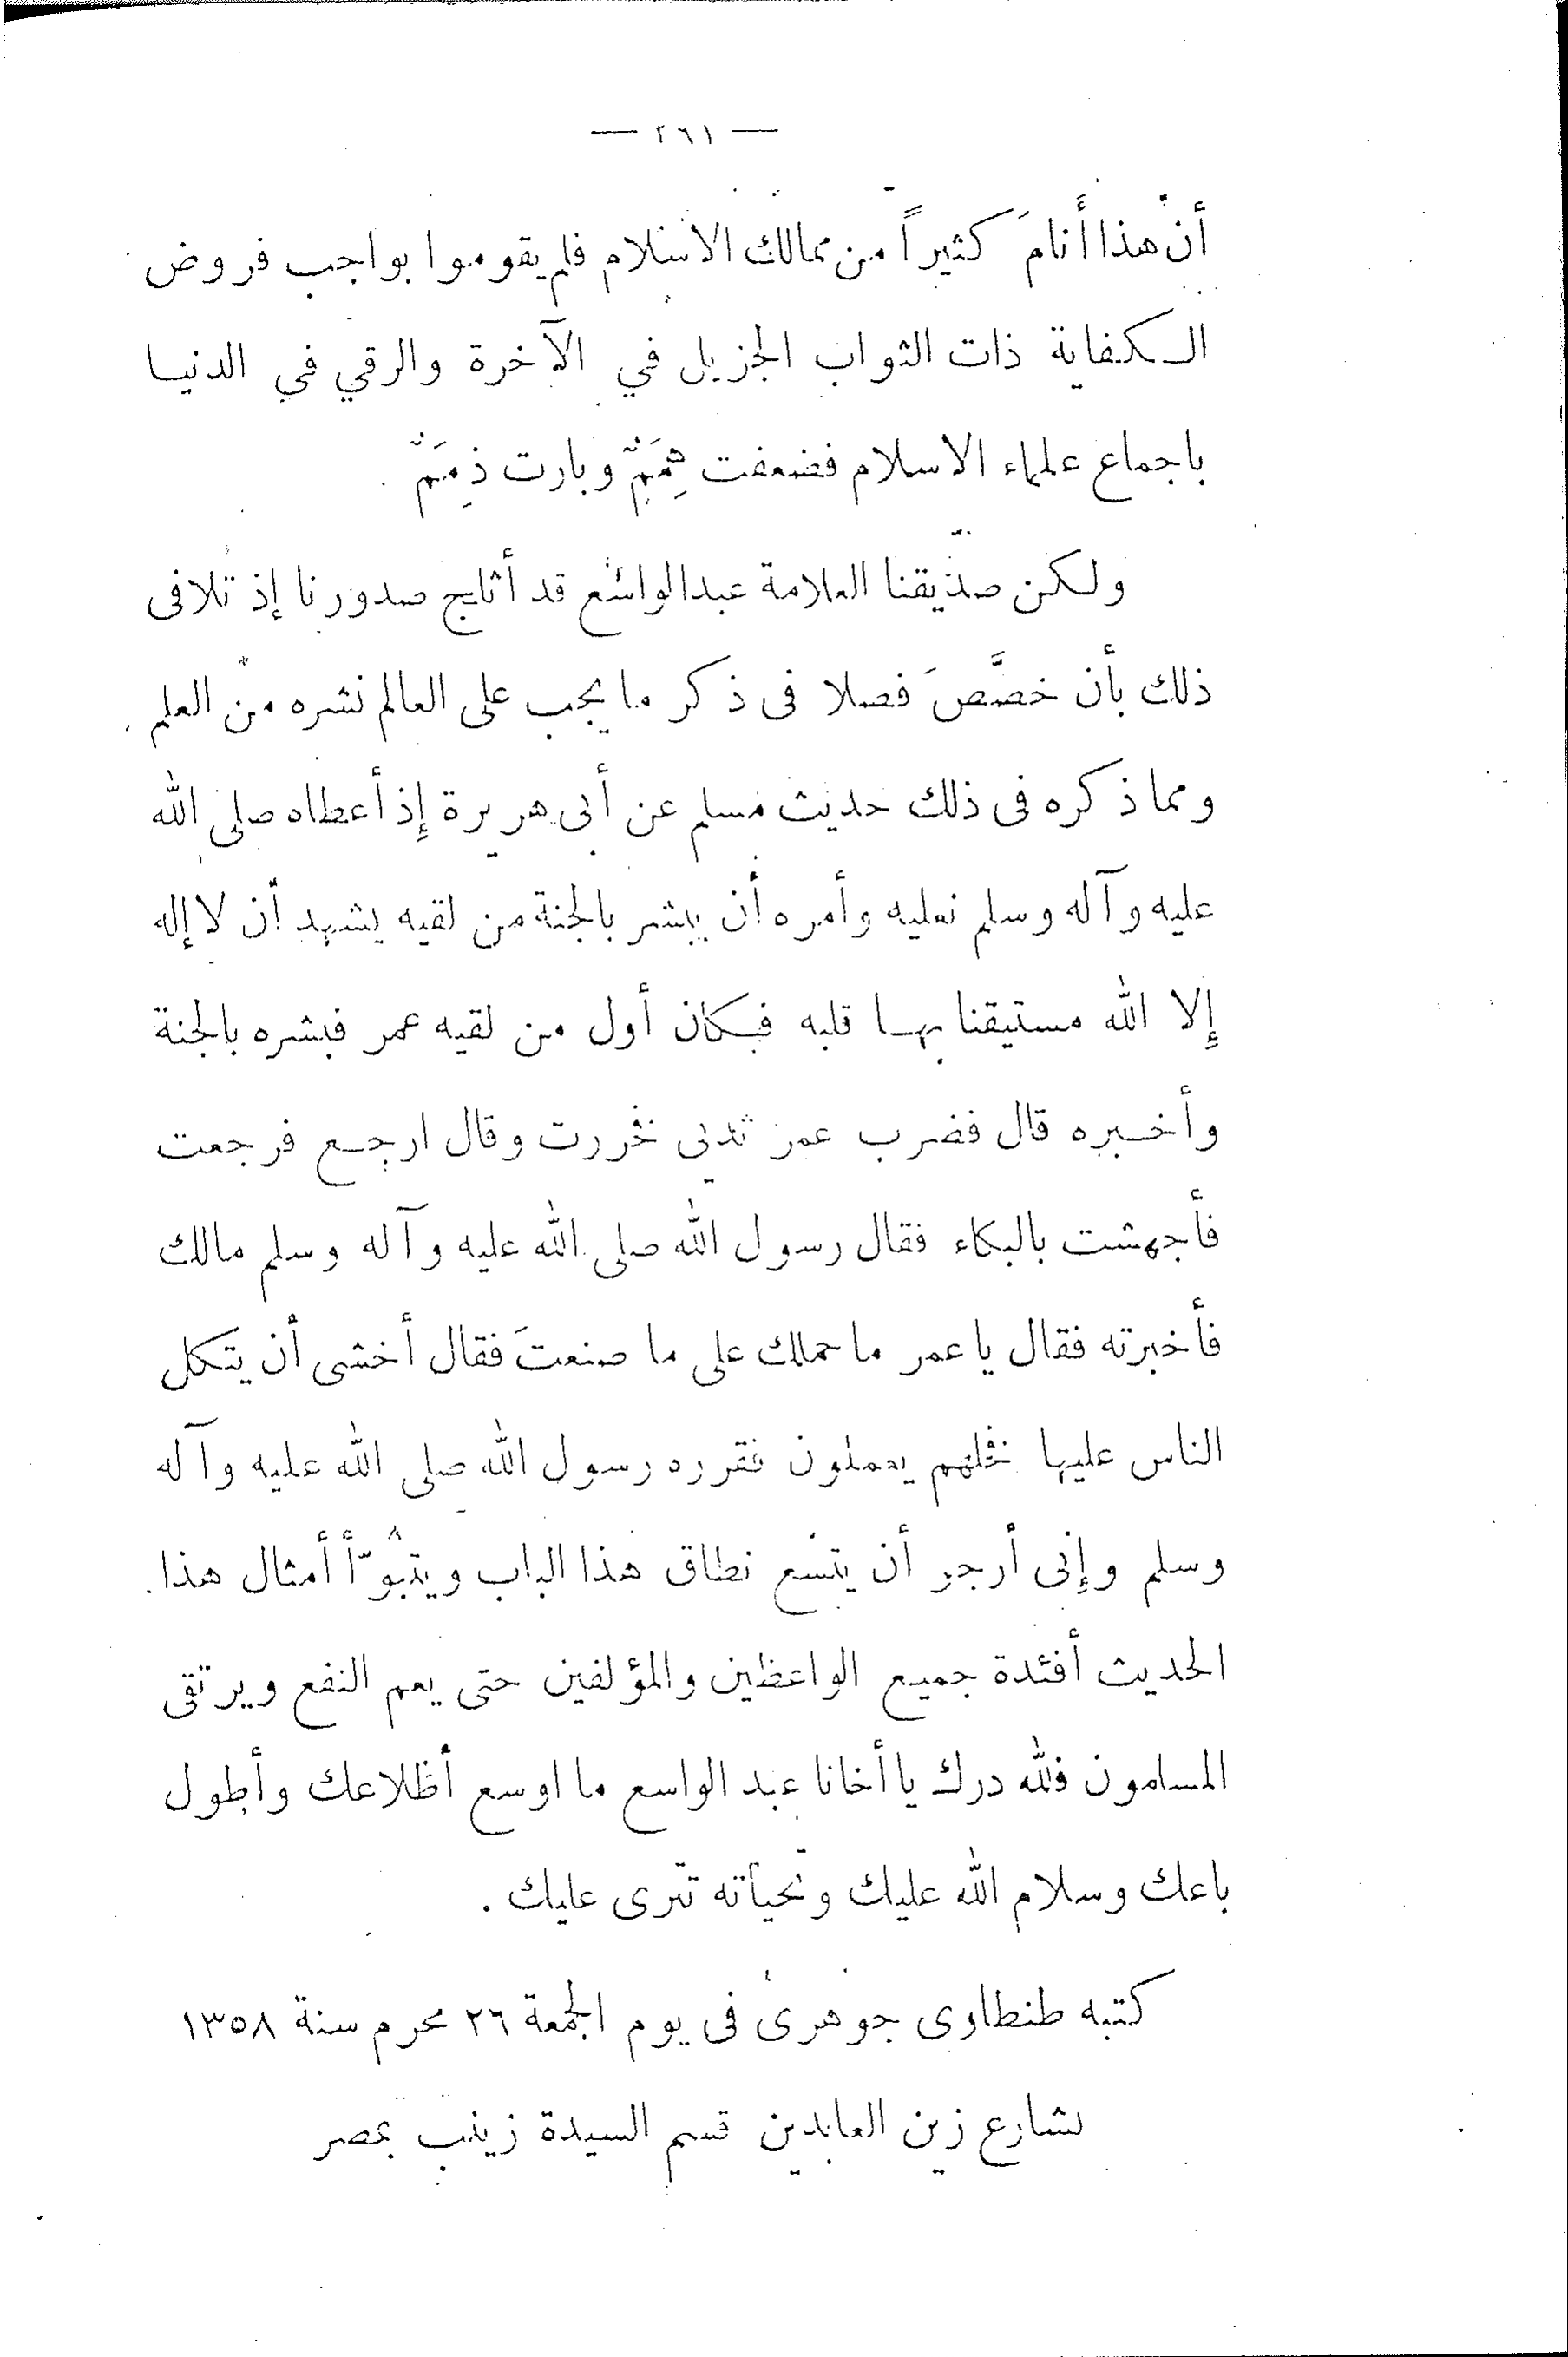 — ٢٦١ —
أن هذا أنامَ كثيراً من ممالك الاسلام فلم يقوموا بواجب فروض
الكفاية ذات الثواب الجزيل في الآخرة والرقي في الدنيا
باجماع علماء الاسلام فضعفت هِمَمٌ وبارت ذِمَمٌ .
ولكن صديقنا العلامة عبد الواسع قد أثلج صدورنا إذ تلافى
ذلك بأن خصَّصَ فصلا فى ذكر ما يجب على العالم نشره من العلم
ومما ذكره فى ذلك حديث مسلم عن أبى هريرة إِذ أعطاه صلى الله
عليه وآله وسلم نعليه وأمره أن يبشر بالجنة من لقيه يشهد أن لا إله
إِلا الله مستيقنا بها قلبه فكان أول من لقيه عمر فبشره بالجنة
وأخبره قال فضرب عمر ثديى فخررت وقال ارجع فرجعت
فأجهشت بالبكاء فقال رسول الله صلى الله عليه وآله وسلم مالك
فأخبرته فقال يا عمر ما حملك على ما صنعتَ فقال أخشى أن يتكل
الناس عليها فخلهم يعملون فقرره رسول الله صلى الله عليه وآله
وسلم وإِنى أرجو أن يتسع نطاق هذا الباب ويتبُوّأ أمثال هذا
الحديث أفئدة جميع الواعظين والمؤلفين حتى يعم النفع ويرتقى
المسلمون فلله درك يا أخانا عبد الواسع ما اوسع أظلاعك وأطول
باعك وسلام الله عليك وتحيأته تترى عليك .
كتبه طنطاوى جوهرى فى يوم الجمعة ٢٦ محرم سنة ١٣٥٨
بشارع زين العابدين قسم السيدة زينب بمصر